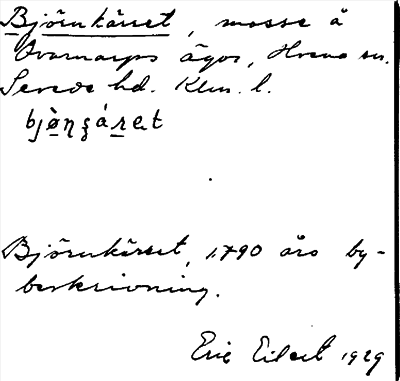 Björnkärret, mosse å
Kvarnarps ägor, Hvena sn.
Sevede hd. Klm. l.
bjò̱ŋʂá̱ret
Björnkärret, 1790 års by-
beskrivning.
Eric Eilert 1929